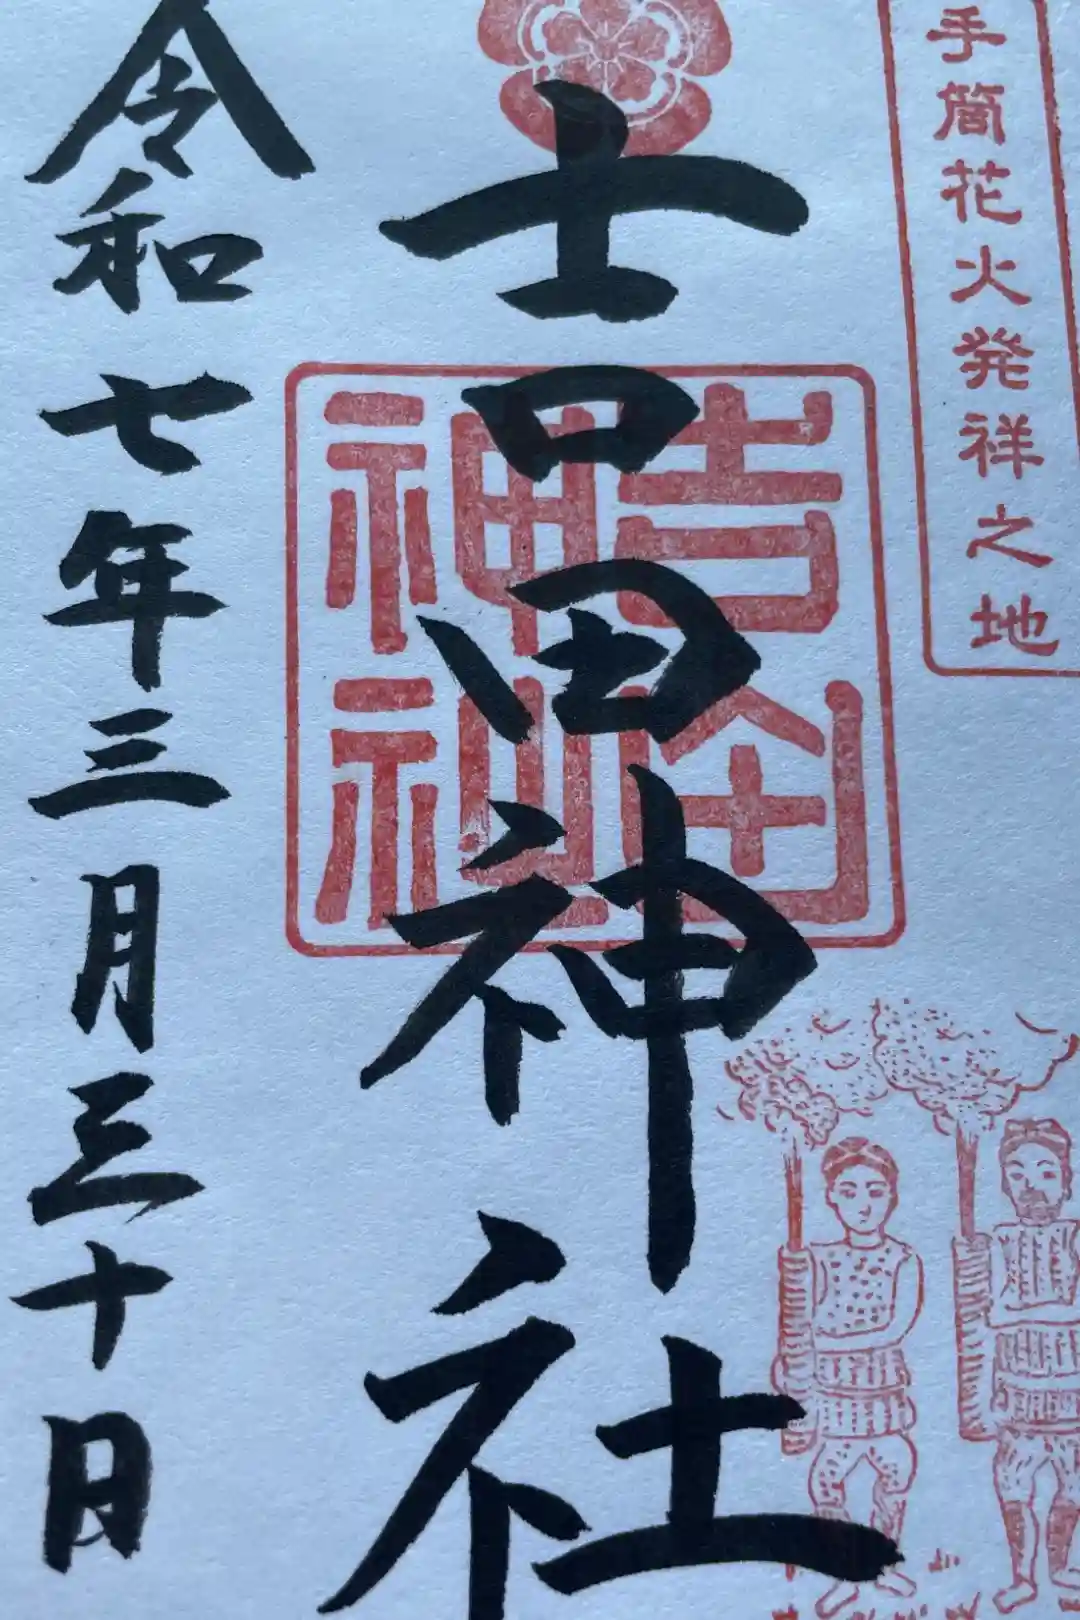 手筒花火発祥之地
吉田神社
吉田神社
令和七年三月三十日